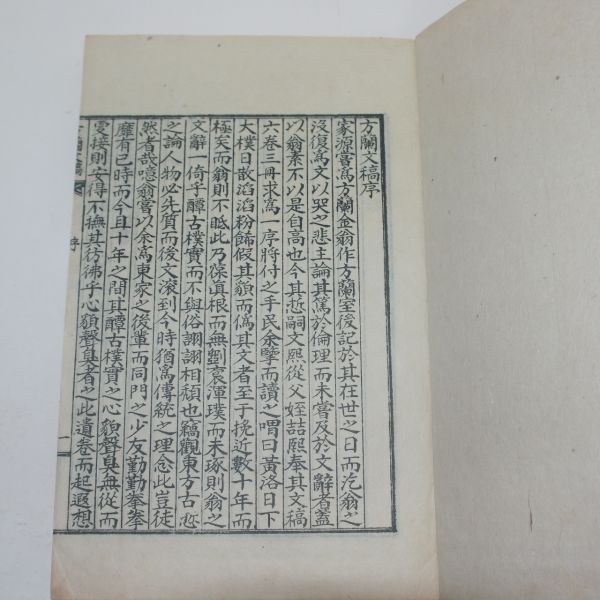 方蘭文稿序
家源嘗爲方蘭金翁作方蘭室後記於其在世之日而汔翁之
沒復爲文以哭之悲主論其篤於倫理而未嘗及於文辭者蓋
以翁素不以是自高也今其哲嗣文熙從父姪喆熙奉其文稿
六卷三冊求爲一序將付之手民余擎而讀之喟曰黃洛日下
大樸日散滔滔粉飾假其貌而僞其文者至于挽近數十年而
極矣而翁則不眡此乃葆眞根而無劉裒渾璞而未琢則翁之
文辭一倚乎醰古樸實而不與俗詡詡相頏也竊觀東方古
之論人物必先質而後文滾到今時猶爲傳統之理念此豈徒
然者哉噫翁嘗以余爲東家之後輩而同門之少友勤勤拳拳
靡有已時而今且十年之間其醰古樸實之心貌聲臭無從而
更接則安得不撫其彷彿乎心貌聲臭者之此遺卷而起遐想
序
一